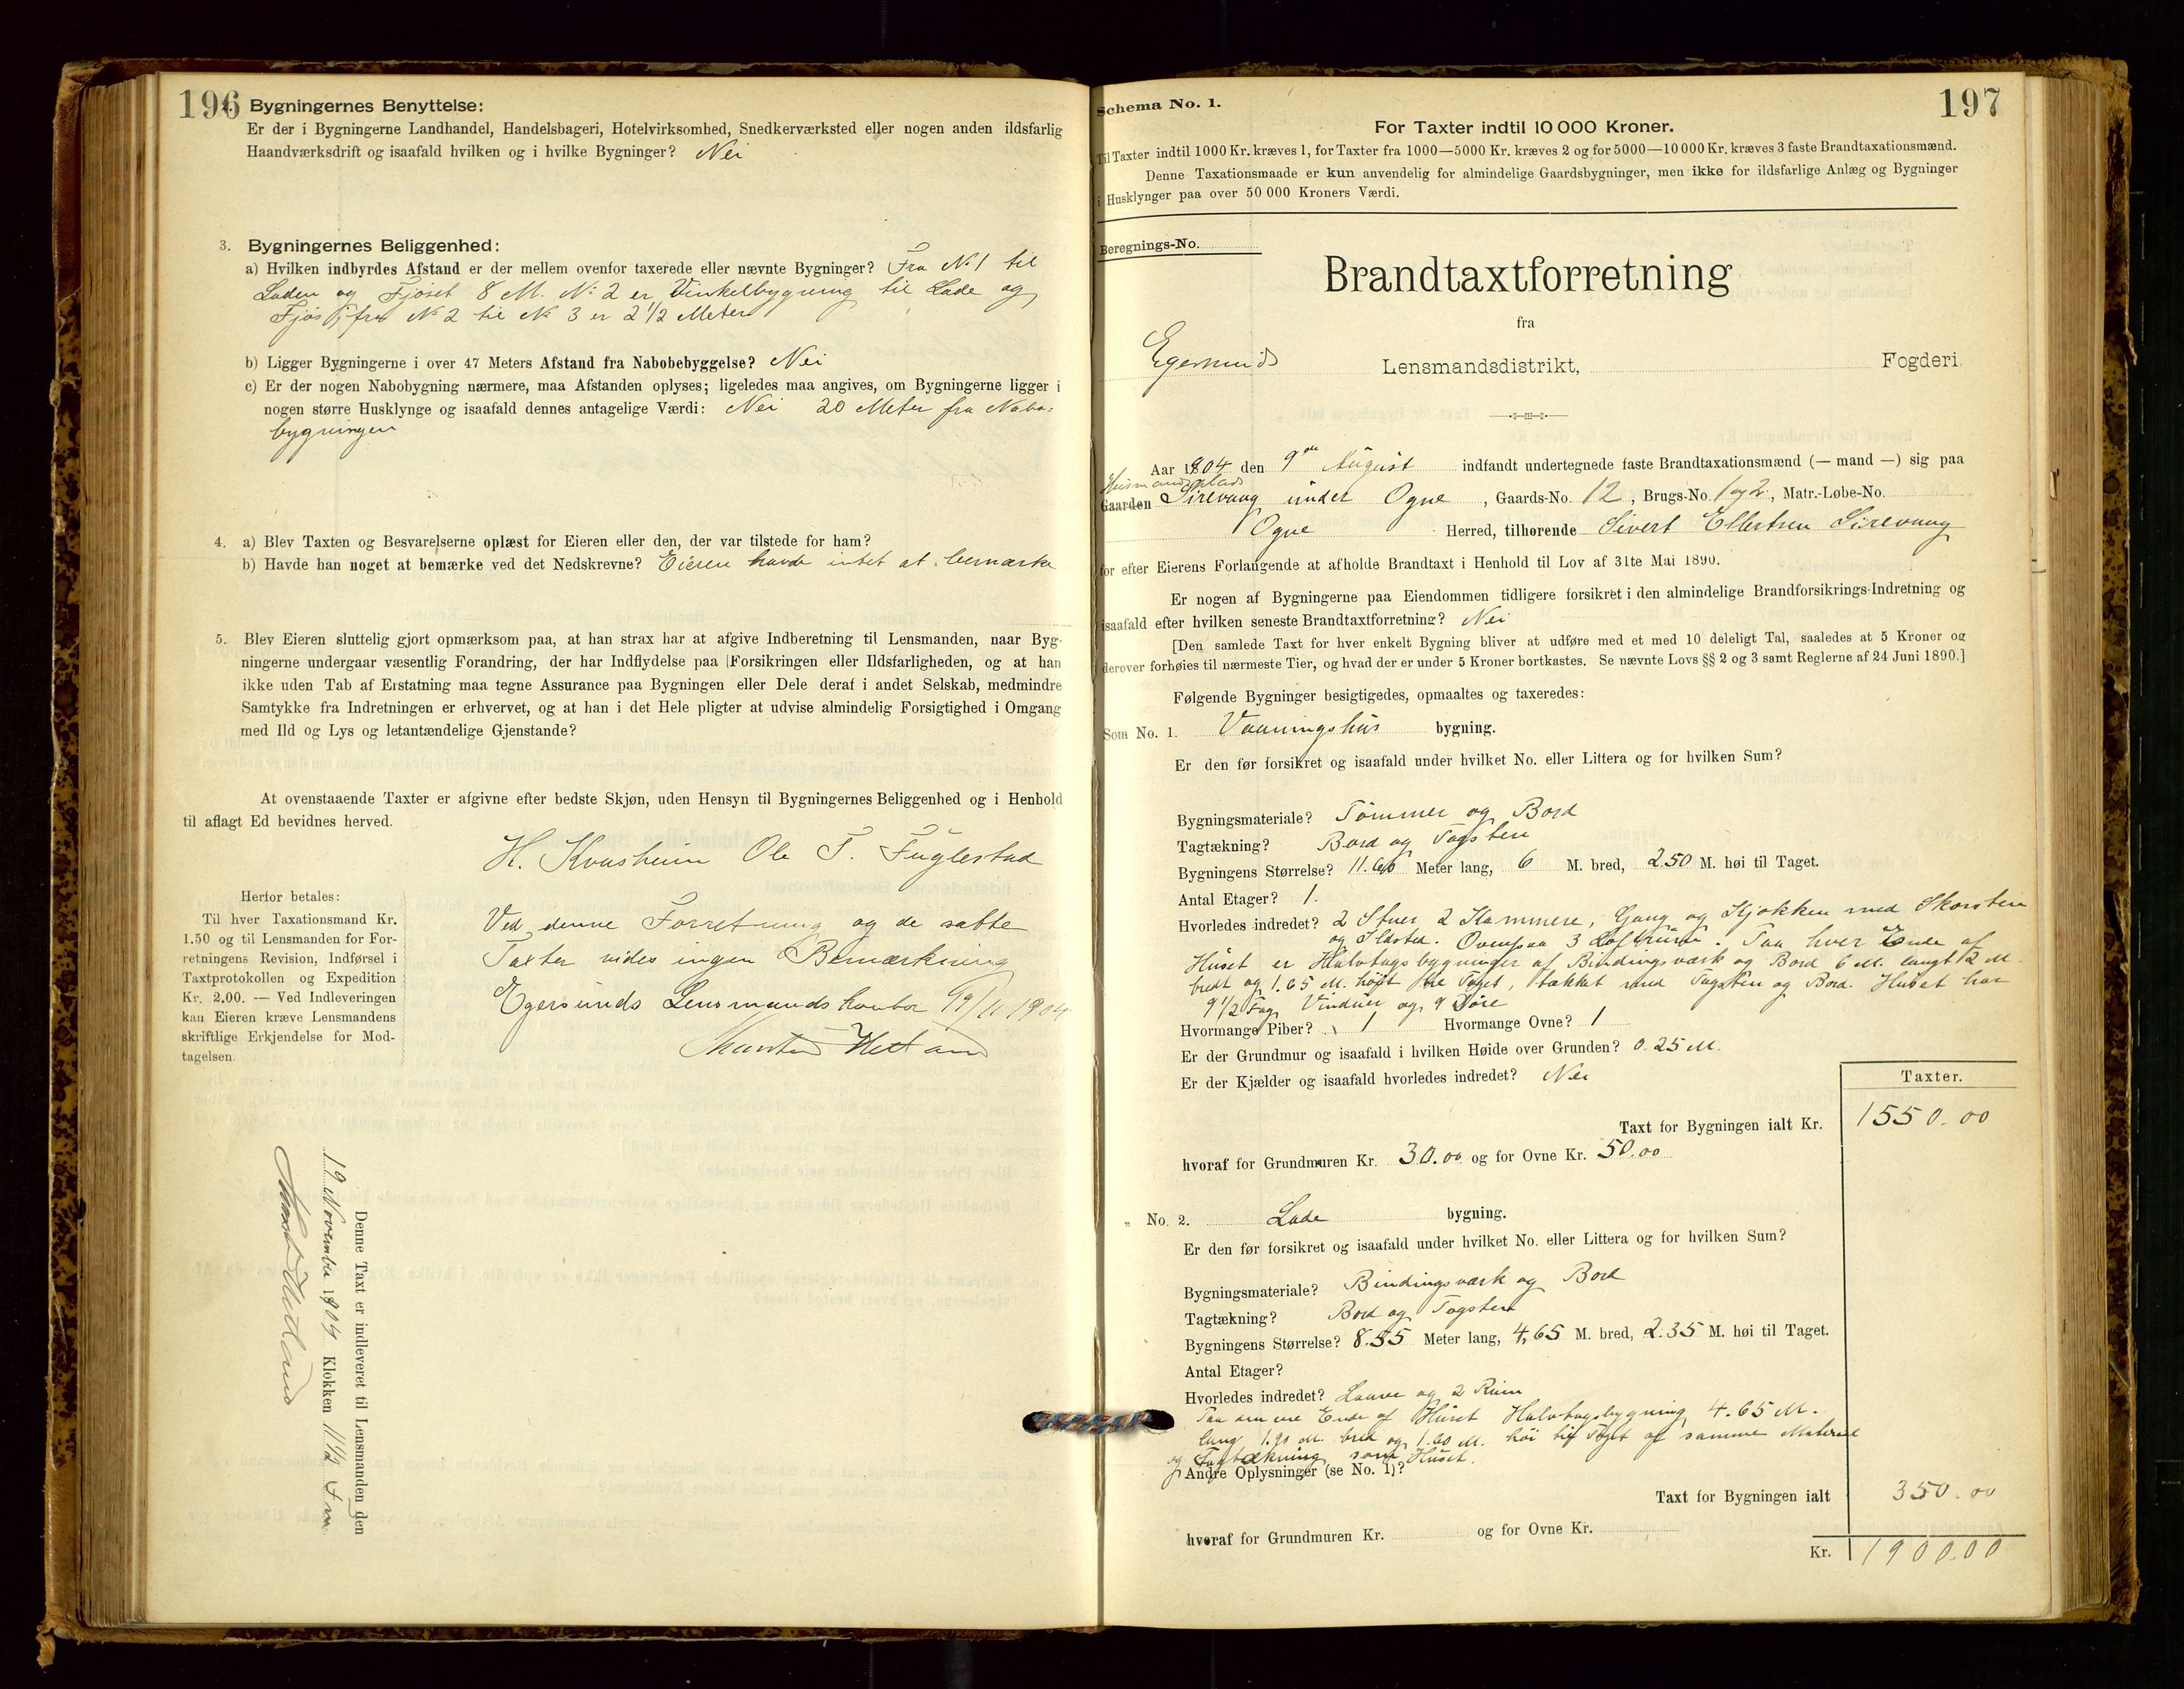 196
2. Bygningernes Benyttelse:
Er der i Bygningerne Landhandel, Handelsbageri, Hotelvirksomhed, Snedkerværksted eller nogen anden ildsfarlig
Haandværksdrift og isaafald hvilken og i hvilke Bygninger? Nei
3. Bygningernes Beliggenhed:
a) Hvilken indbyrdes Afstand er der mellem ovenfor taxerede eller nævnte Bygninger? Fra No 1 til
Laden og Fjøset 8 M. No 2 er Vinkelbygning til Lade og
Fjøs fra No 2 til No 3 er 2 1/2 Meter
b) Ligger Bygningerne i over 47 Meters Afstand fra Nabobebyggelse? Nei
c) Er der nogen Nabobygning nærmere, maa Afstanden oplyses; ligeledes maa angives, om Bygningerne ligger i
nogen større Husklynge og isaafald dennes antagelige Værdi: Nei 20 Meter fra Nabo=
bygningen
4. a) Blev Taxten og Besvarelserne oplæst for Eieren eller den, der var tilstede for ham?
b) Havde han noget at bemærke ved det Nedskrevne? Eieren havde intet at bemærke
5. Blev Eieren sluttelig gjort opmærksom paa, at han strax har at afgive Indberetning til Lensmanden, naar Byg-
ningerne undergaar væsentlig Forandring, der har Indflydelse paa Forsikringen eller Ildsfarligheden, og at han
ikke uden Tab af Erstatning maa tegne Assurance paa Bygningen eller Dele deraf i andet Selskab, medmindre
Samtykke fra Indretningen er erhvervet, og at han i det Hele pligter at udvise almindelig Forsigtighed i Omgang
med Ild og Lys og letantændelige Gjenstande?
At ovenstaaende Taxter er afgivne efter bedste Skjøn, uden Hensyn til Bygningernes Beliggenhed og i Henhold
til aflagt Ed bevidnes herved.
H. Kvasheim Ole T. Fuglestad
Herfor betales:
Til hver Taxationsmand Kr.
1.50 og til Lensmanden for For-
retningens Revision, Indførsel i
Taxtprotokollen og Expedition
Kr. 2.00. — Ved Indleveringen
kan Eieren kræve Lensmandens
skriftlige Erkjendelse for Mod-
tagelsen.
Ved denne Forretning og de satte
Taxter vides ingen Bemærkning
Egersunds Lensmandskontor 19/11 1904
Hetland
Denne Taxt er indleveret til Lensmanden den
19 November 1904 Klokken 11 1/2 Fm
Hetland
197
Schema No. 1.
For Taxter indtil 10 000 Kroner.
Til Taxter indtil 1000 Kr. kræves 1, for Taxter fra 1000—5000 Kr. kræves 2 og for 5000—10 000 Kr. kræves 3 faste Brandtaxationsmænd.
Denne Taxationsmaade er kun anvendelig for almindelige Gaardsbygninger, men ikke for ildsfarlige Anlæg og Bygninger
i Husklynger paa over 50 000 Kroners Værdi.
Beregnings-No.
Brandtaxtforretning
fra
Egersunds Lensmandsdistrikt, Fogderi.
Aar 1904 den 9de August indfandt undertegnede faste Brandtaxationsmænd (— mand —) sig paa
Husmandsplads
Gaarden Sirevaag under Ogne, Gaards-No. 12, Brugs-No. 1 og 2, Matr.-Løbe-No.
Ogne Herred, tilhørende Sivert Ellertsen Sirevaag
for efter Eierens Forlangende at afholde Brandtaxt i Henhold til Lov af 31te Mai 1890.
Er nogen af Bygningerne paa Eiendommen tidligere forsikret i den almindelige Brandforsikrings-Indretning og
isaafald efter hvilken seneste Brandtaxtforretning? Nei
[Den samlede Taxt for hver enkelt Bygning bliver at udføre med et med 10 deleligt Tal, saaledes at 5 Kroner og
derover forhøies til nærmeste Tier, og hvad der er under 5 Kroner bortkastes. Se nævnte Lovs §§ 2 og 3 samt Reglerne af 24 Juni 1890.]
Følgende Bygninger besigtigedes, opmaaltes og taxeredes:
Som No. 1. Vaaningshus bygning.
Er den før forsikret og isaafald under hvilket No. eller Littera og for hvilken Sum?
Bygningsmateriale? Tømmer og Bord
Tagtækning? Bord og Tagsten
Bygningens Størrelse? 11.60 Meter lang, 6 M. bred, 2.50 M. høi til Taget.
Antal Etager? 1.
Hvorledes indredet? 2 Stuer 2 Kammere, Gang og Kjøkken med Skorsten
og Ildsted. Ovenpaa 3 Loftrum. Paa hver Ende af
Huset er Halvtagsbygninger af Bindingsværk og Bord 6 M. langt 2 M.
bredt og 1.65 M. høit til Taget, tækket med Tagsten og Bord. Huset har
9 1/2 Fag Vinduer og 9 Døre
Hvormange Piber? 1 Hvormange Ovne? 1
Er der Grundmur og isaafald i hvilken Høide over Grunden? 0.25 M.
Er der Kjælder og isaafald hvorledes indredet? Nei
Taxter.
Taxt for Bygningen ialt Kr. 1550.00
hvoraf for Grundmuren Kr. 30.00 og for Ovne Kr. 50.00
" No. 2. Lade bygning.
Er den før forsikret og isaafald under hvilket No. eller Littera og for hvilken Sum?
Bygningsmateriale? Bindingsværk og Bord
Tagtækning? Bord og Tagsten
Bygningens Størrelse? 8.55 Meter lang, 4.65 M. bred, 2.35 M. høi til Taget.
Antal Etager?
Hvorledes indredet? Laave og 2 Rum
Paa den ene Ende af Huset Halvtagsbygning 4.65 M.
lang 1.90 M. bred og 1.60 M. høi til Taget af samme Materiale
og Tagtækning som Huset.
Andre Oplysninger (se No. 1)?
Taxt for Bygningen ialt 350.00
hvoraf for Grundmuren Kr. og for Ovne Kr.
Kr. 1900.00